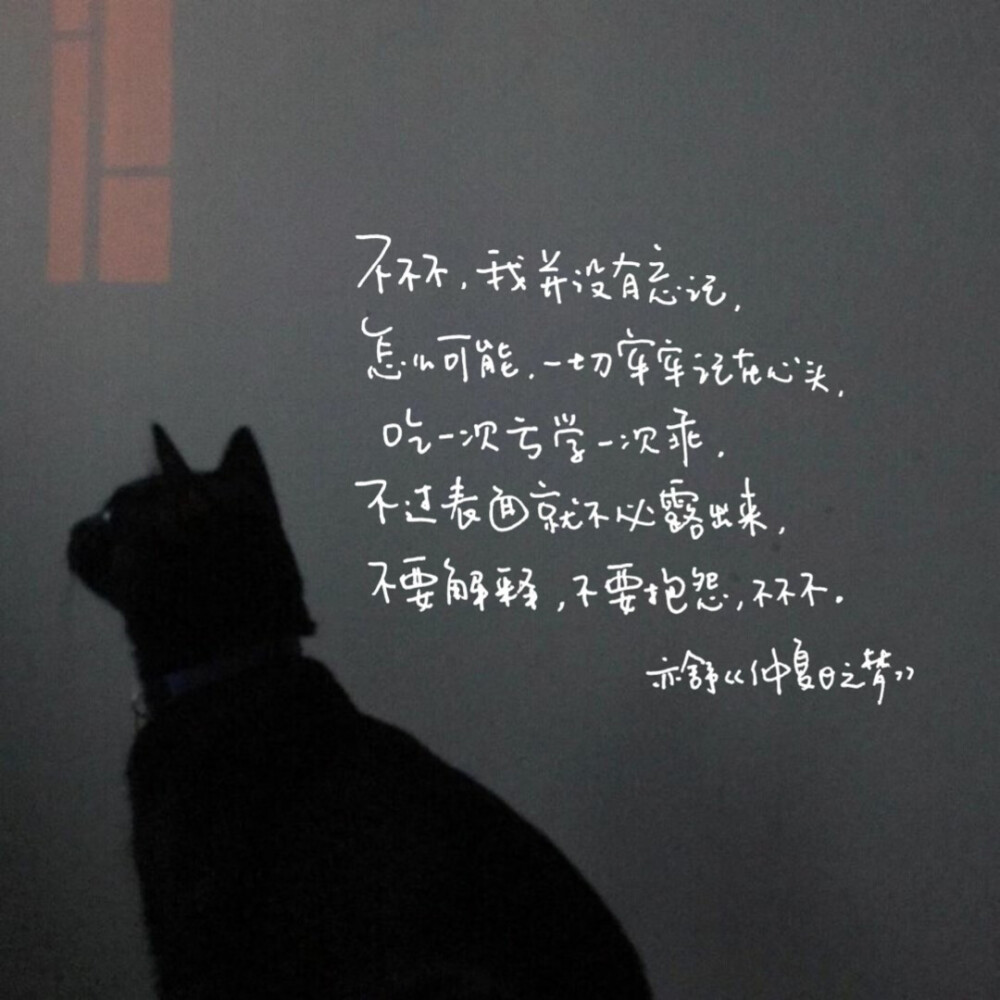 不不不,我并没有忘记,
怎么可能,一切牢牢记在心头,
吃一次亏学一次乖,
不过表面就不必露出来,
不要解释,不要抱怨,不不不.
亦舒《仲夏日之梦》